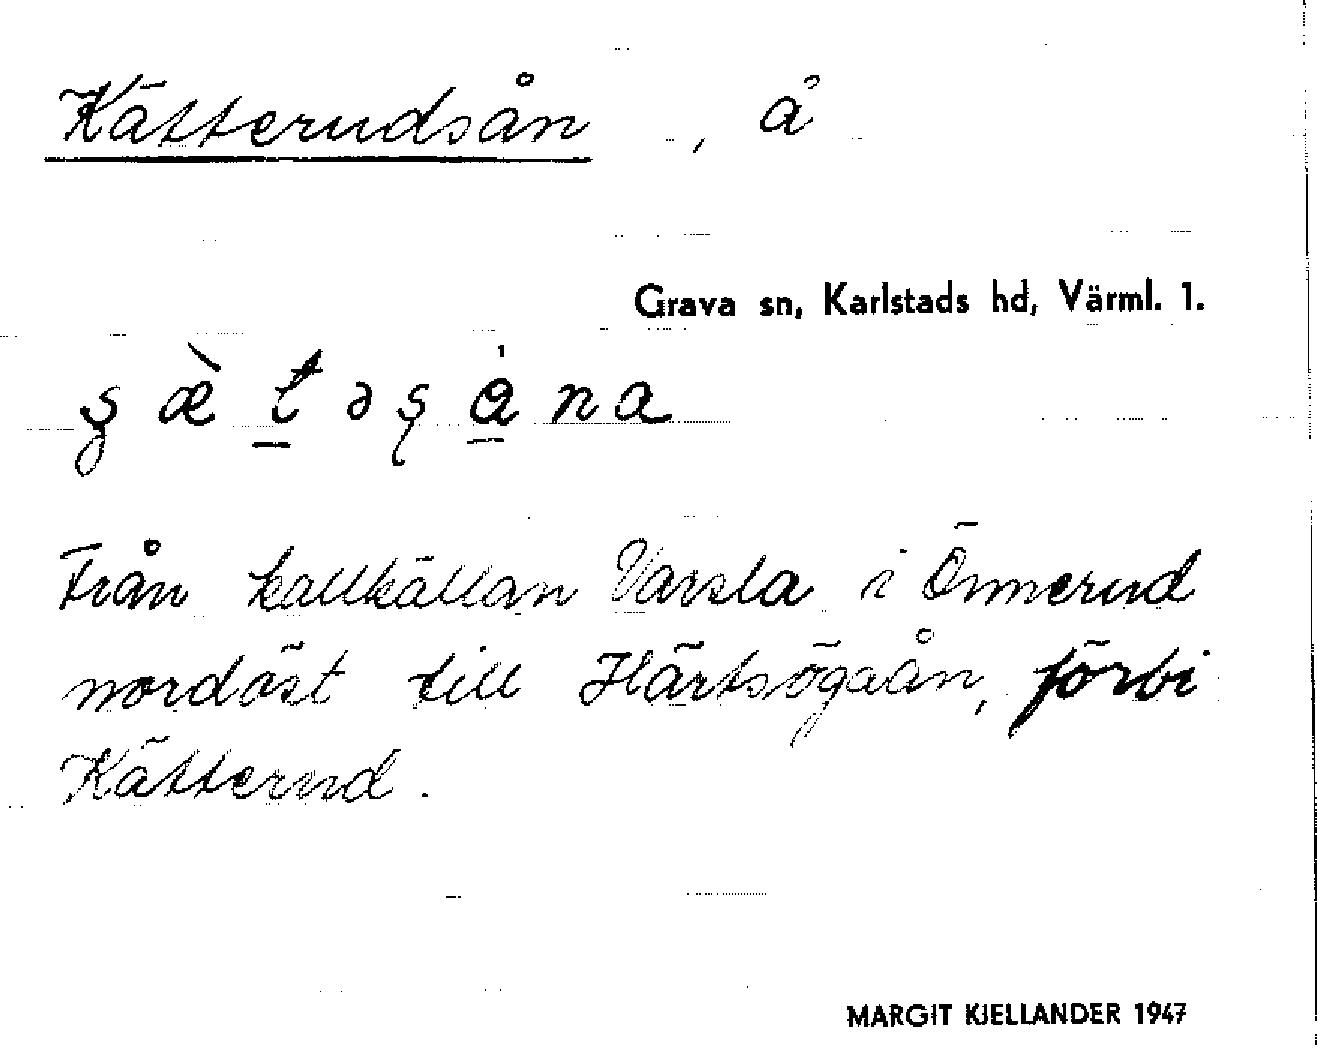 Kätterudsån , å
Grava sn, Karlstads hd, Värml. 1.
Från kallkällan Varsla i Önnerud
nordöst till Härtsögaån, förbi
Kätterud.
MARGIT KJELLANDER 1947